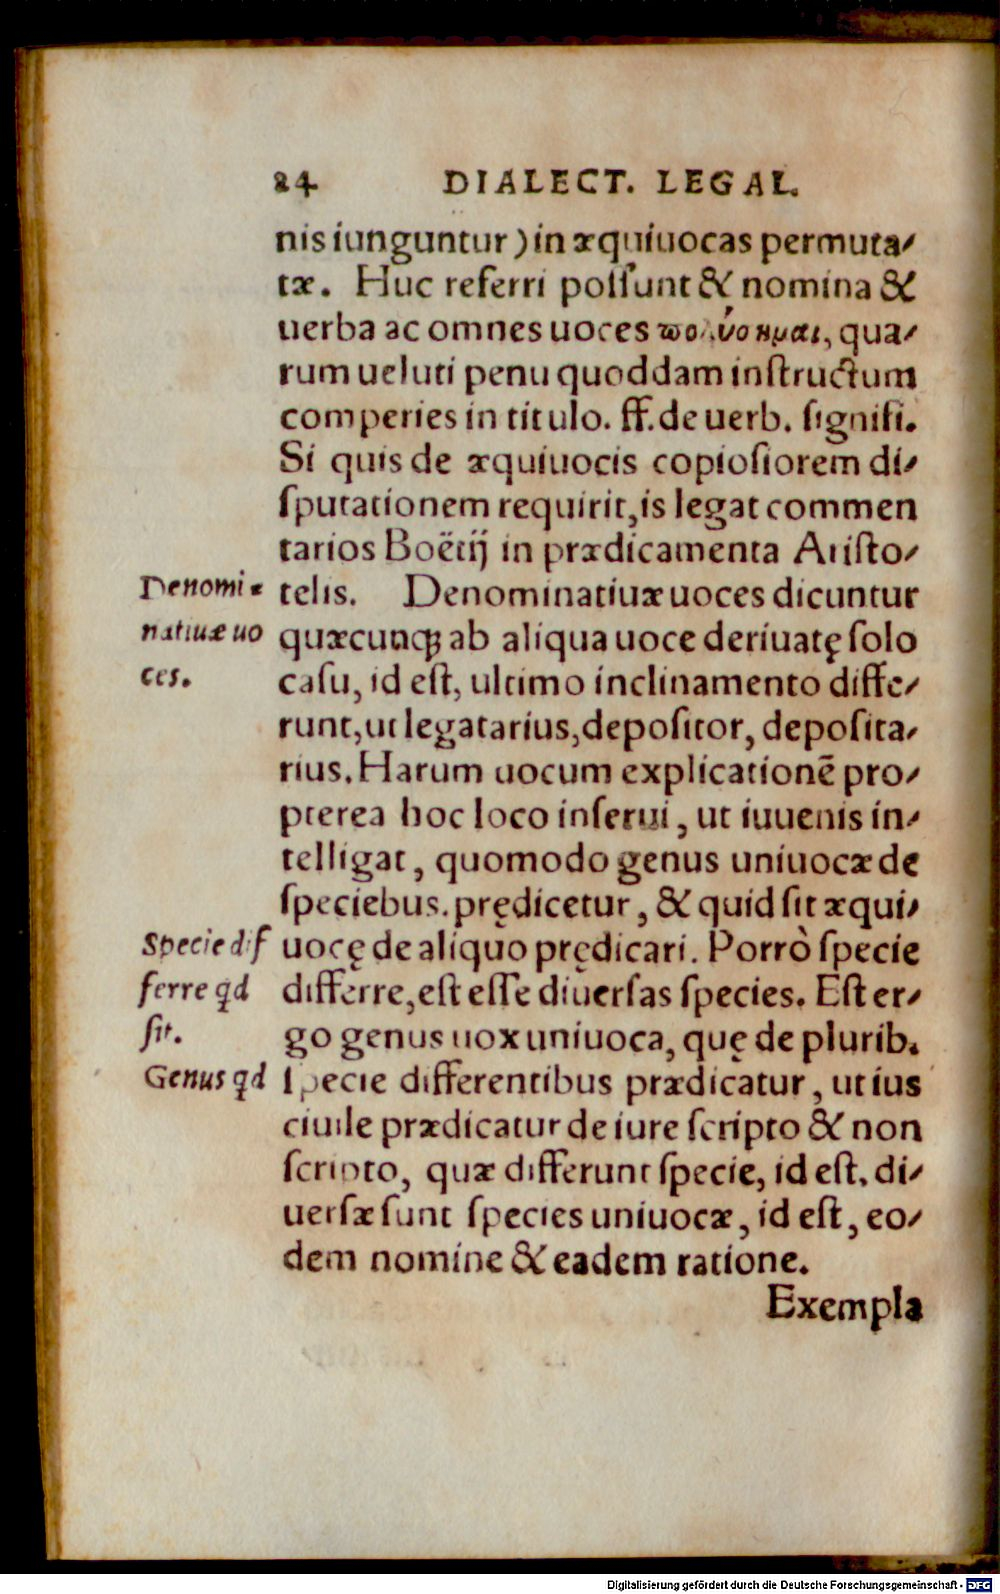 24 DIALECT. LEGAL.
nis iunguntur) in æquiuocas permuta⸗
tæ. Huc referri poſſunt & nomina &
uerba ac omnes uoces quа⸗
rum ueluti penu quoddam inſtructum
comperies in titulo. ff. de uerb. ſignifi.
Si quis de æquiuocis copioſiorem di⸗
ſputationem requirit, is legat commen
tarios Boëtij in prædicamenta Ariſto⸗
Denomi⸗
telis. Denominatiuæ uoces dicuntur
natiuæ uo
quæcunqꝫ ab aliqua uoce deriuatę ſolo
ces.
caſu, id eſt, ultimo inclinamento diffe⸗
runt, ut legatarius, depoſitor, depoſita⸗
rius. Harum uocum explicationē pro⸗
pterea hoc loco inſerui, ut iuuenis in⸗
telligat, quomodo genus uniuocæ de
ſpeciebus. prędicetur, & quid ſit æqui⸗
Specie dif
uocę de aliquo prędicari. Porrò ſpecie
ferre qd
differre, eſt eſſe diuerſas ſpecies. Eſt er⸗
ſit.
go genus uox uniuoca, quę de plurib.
Genus qd
ſpecie differentibus prædicatur, ut ius
ciuile prædicatur de iure ſcripto & non
ſcripto, quæ differunt ſpecie, id eſt. di⸗
uerſæ ſunt ſpecies uniuocæ, id eſt, eo⸗
dem nomine & eadem ratione.
Exempla
Digitalisierung gefördert durch die Deutsche Forschungsgemeinschaft - DFG